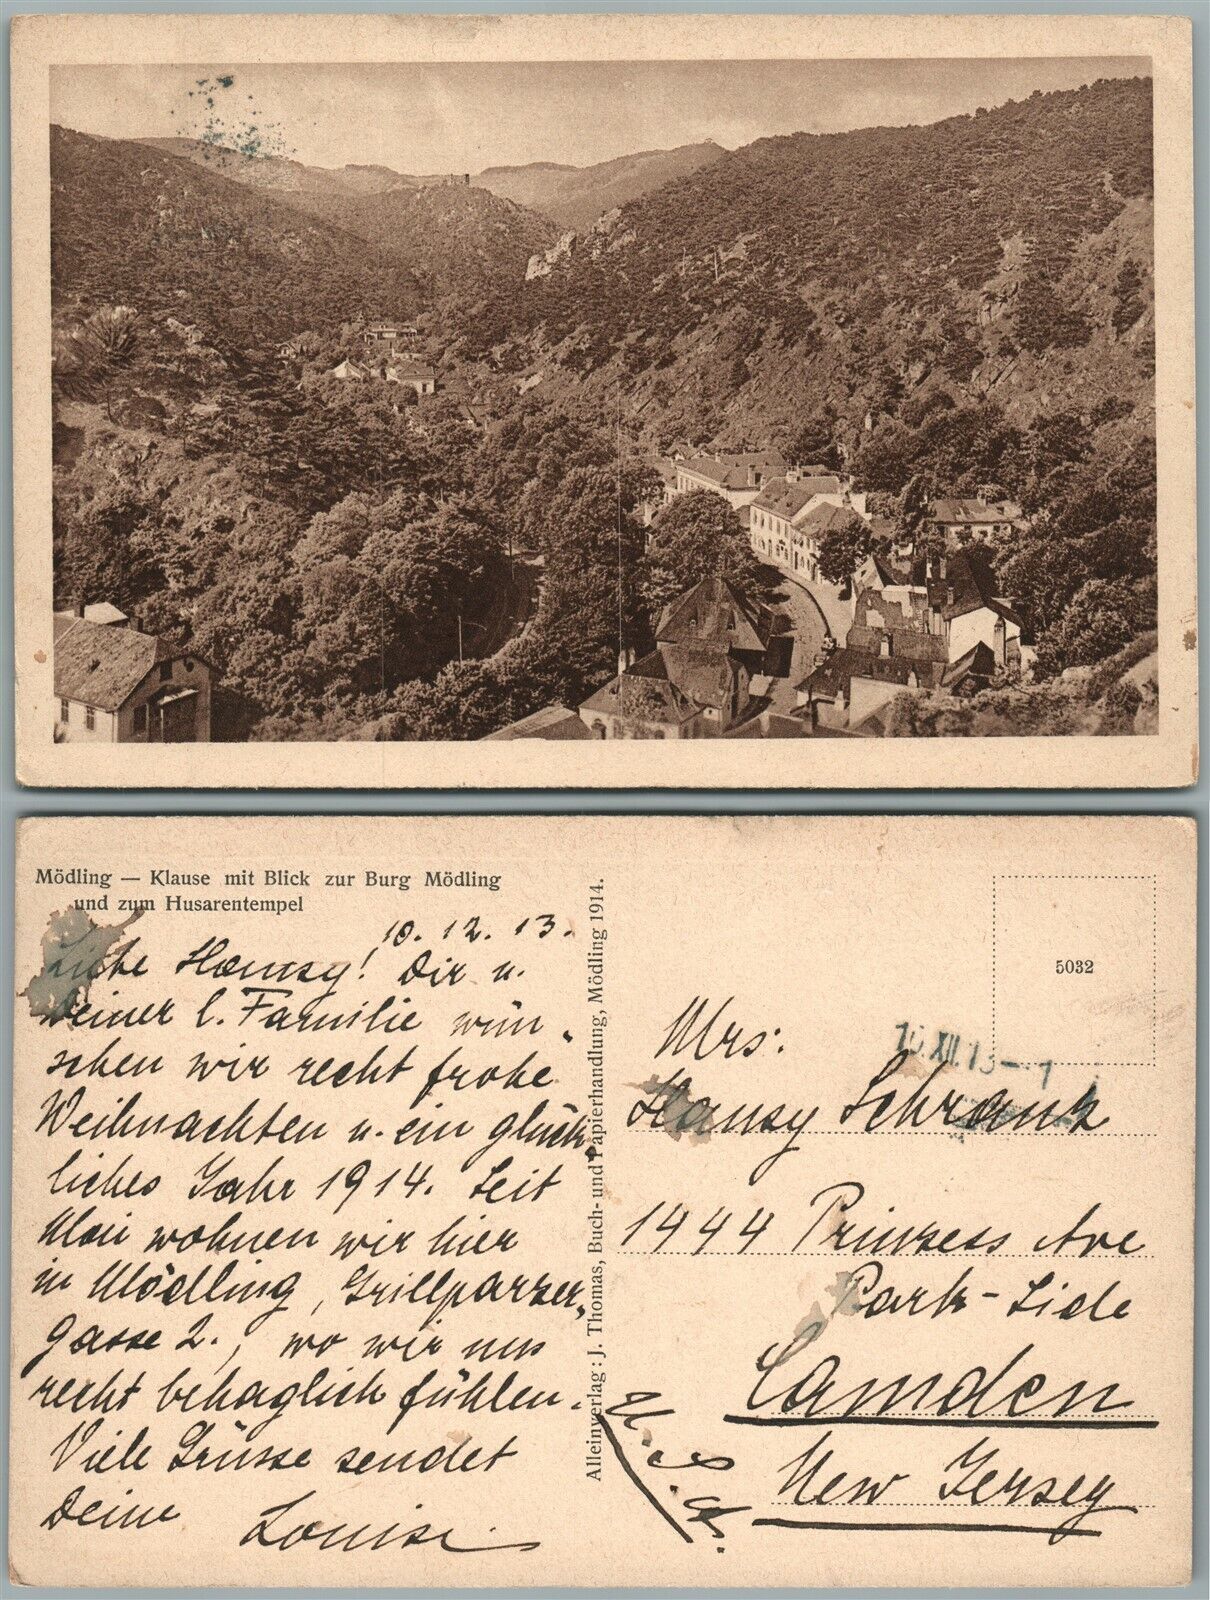 Mödling — Klause mit Blick zur Burg Mödling
und zum Husarentempel
10. 12. 13.
Liebe Hansy! Dir u.
Deiner l. Familie wün-
schen wir recht frohe
Weihnachten u. ein glück-
liches Jahr 1914. Seit
Mai wohnen wir hier
in Mödling, Grillparzer-
gasse 2., wo wir uns
recht behaglich fühlen.
Viele Grüsse sendet
Deine Louise.
Alleinverlag: J. Thomas, Buch- und Papierhandlung, Mödling 1914.
5032
XII.13
Mrs:
Hansy Schrank
1444 Prinzess Ave
Park-Side
Camden
New Jersey